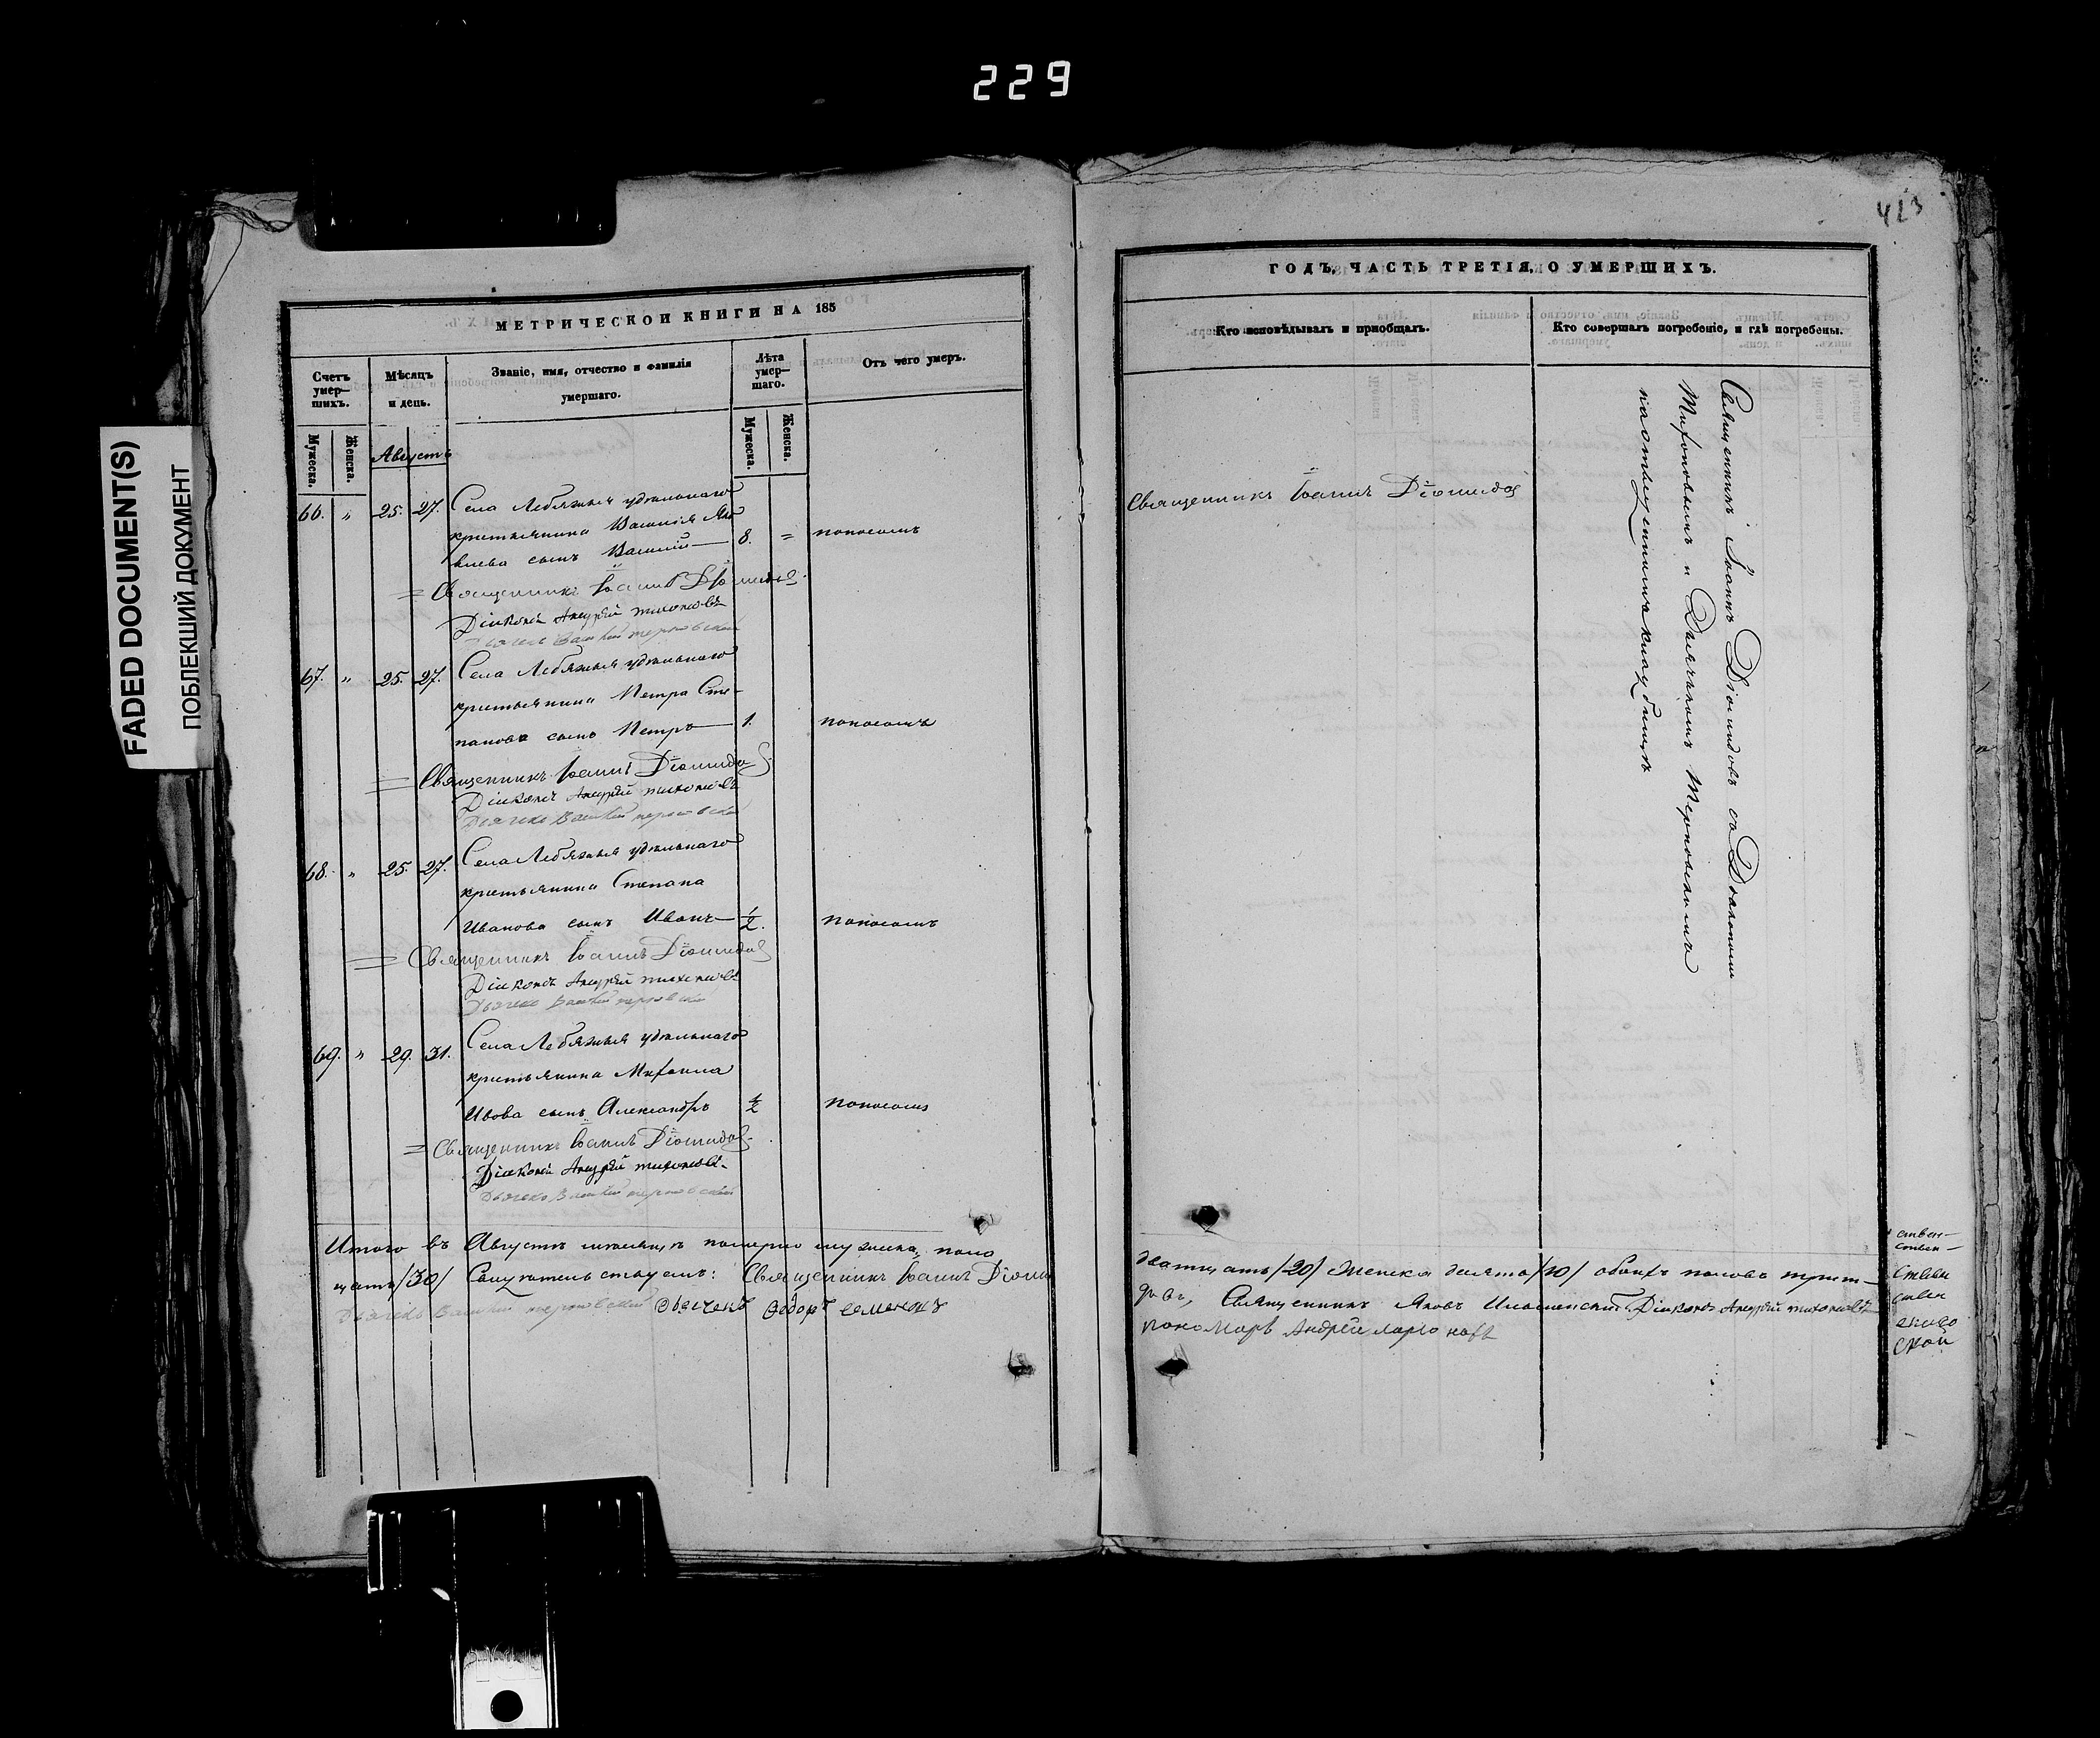 229
FADED DOCUMENT(S)
ПОБЛЕКШИЙ ДОКУМЕНТ
МЕТРИЧЕСКОЙ КНИГИ НА 185
Счетъ умер-шихъ.
Мѣсяцъ и день.
Званіе, имя, отчество и фамилія умершаго.
Лѣта умер-шаго.
Отъ чего умеръ.
Мужеска.
Женска.
Мужеска.
Женска.
Августъ
66. " 25. 27. Села Лебяжья удѣльнаго
крестьянина Василія Яко
влева сынъ Василій — 8. = поносомъ
= Священникъ Іоаннъ Діомидов
Діаконъ Андрей Тихоновъ
Дьячекъ Василий терновский
67. " 25. 27. Села Лебяжья удѣльнаго
крестьянина Петра Сте-
панова сынъ Петръ — 1. поносомъ
= Священникъ Іоаннъ Діомидов
Діаконъ Андрей Тихоновъ
Дьячекъ Василий терновский
68. " 25. 27. Села Лебяжья удѣльнаго
крестьянина Степана
Иванова сынъ Иванъ — 1/2. поносомъ
= Священникъ Іоаннъ Діомидов
Діаконъ Андрей Тихоновъ
Дьячекъ Василий терновский
69. " 29. 31. Села Лебяжья удѣльнаго
крестьянина Михаила
Ивова сынъ Александръ 1/2 поносомъ
= Священникъ Іоаннъ Діомидов
Діаконъ Андрей Тихоновъ
Дьячекъ Василий терновский
Итого въ Августѣ мѣсяцѣ померло мужеска пола
/30/ Священникъ Іоаннъ Діоми
Дьячекъ Василий терновский дьячекъ Ѳедоръ семеновъ
423
ГОДЪ, ЧАСТЬ ТРЕТІЯ, О УМЕРШИХЪ.
Кто исповѣдывалъ и пріобщалъ.
Кто совершалъ погребеніе, и гдѣ погребены.
Священникъ Іоаннъ Діомидов
Священникъ Іоаннъ Діомидовъ съ Діакономъ
Тихоновымъ и Дьячкомъ Терновскимъ
на отведенномъ кладбищѣ
двадцать /20/ женска десять /10/ обоихъ половъ трит-
Священникъ Яковъ Діаконъ Андрей Тихоновъ
пономарь Андрей